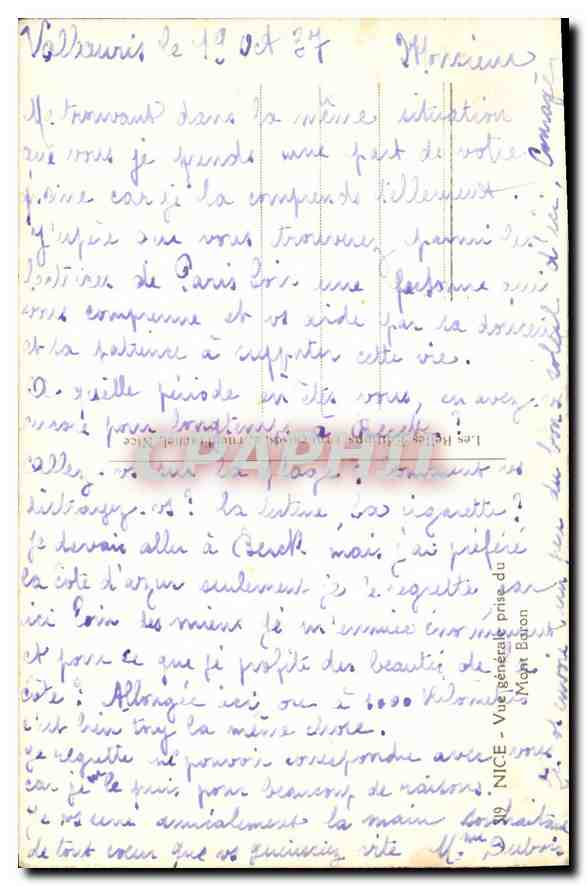 Vallauris le 19 Oct 37 Monsieur
Me trouvant dans la même situation
que vous je prends une part de votre
peine car je la comprends tellement.
J'espère que vous trouverez parmi les
lectrices de Paris Soir une personne qui
vous comprenne et vs aide par sa douceur
et sa patience à supporter cette vie.
De quelle période en êtes vous, en avez
vous pour longtemps à Berck?
allez-vs sur la plage? comment vs
distrayez-vs? la lecture la cigarette?
Je devais aller à Berck mais j'ai préféré
la côte d'azur seulement je le regrette car
ici loin des miens je m'ennuie énormément
et pour ce que je profite des beautés de la
côte! Allongée ici ou à 1000 kilomètres
c'est bien la même chose.
Je regrette ne pouvoir correspondre avec vous
car je ne le puis pour beaucoup de raisons.
Je vs serre amicalement la main souhaitant
de tout coeur que vs guérissiez vite Mme Dubois
Je vs envoie un peu du bon soleil d'ici, Courage
319 NICE - Vue générale prise du
Mont Boron
Les Belles Editions
Nice
CPAPHIL